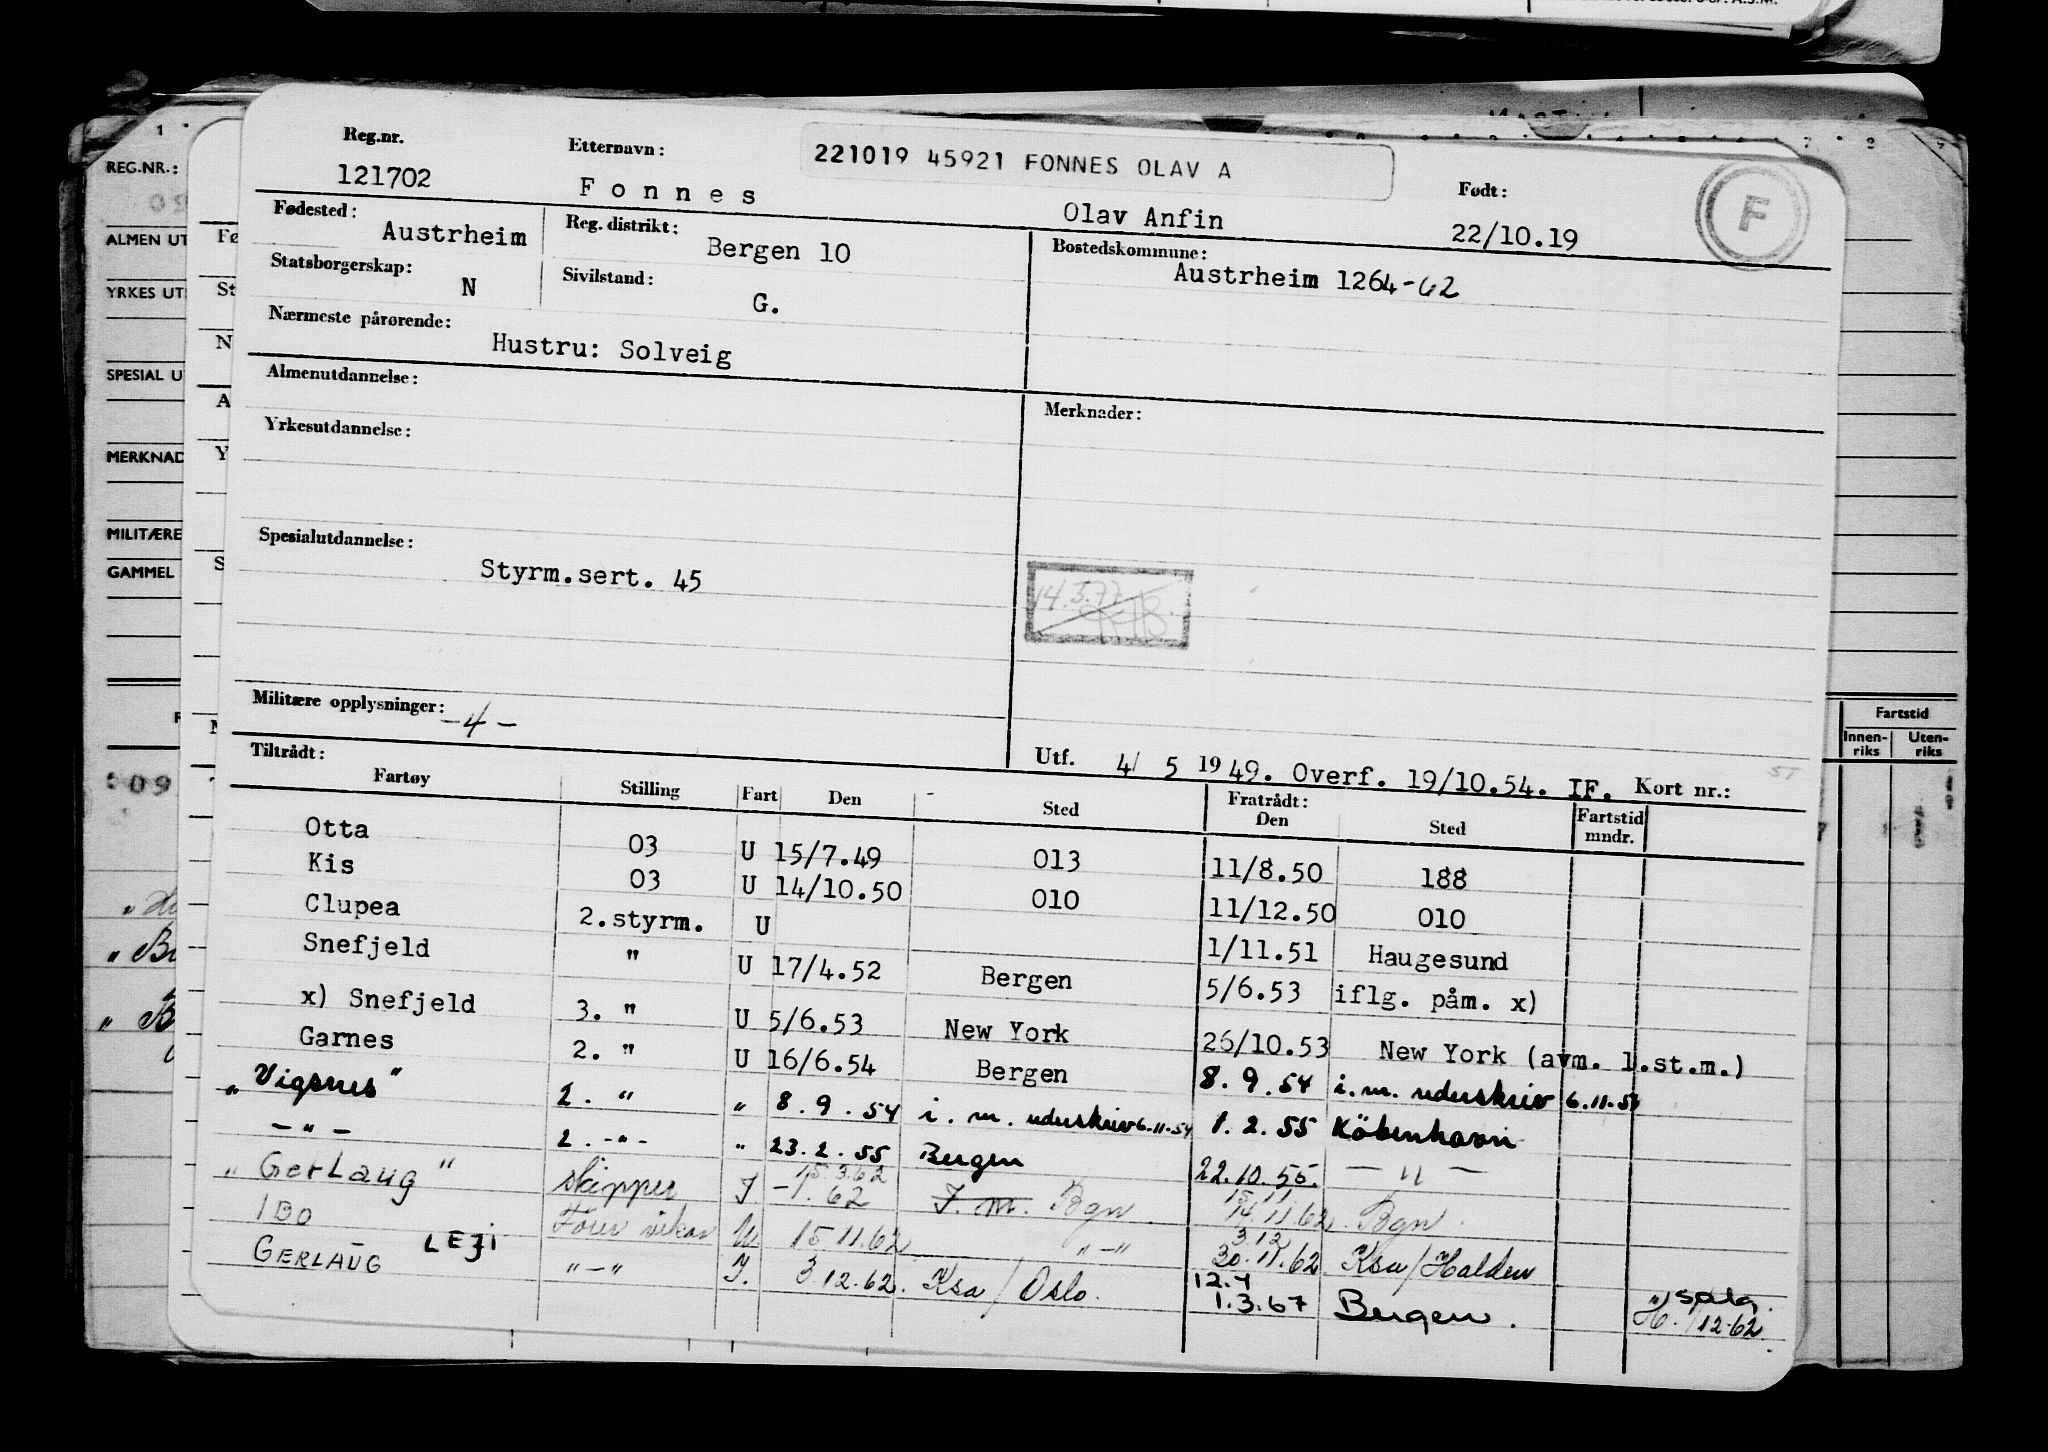 REG.NR.:
ALMEN UT
YRKES UT
SPESIAL U
MERKNAD
MILITÆRE
GAMMEL
Reg.nr. Etternavn: 221019 45921 FONNES OLAV A Født: F
121702 Fonnes Olav Anfin 22/10.19
Fødested: Austrheim Reg. distrikt: Bergen 10 Bostedskommune: Austrheim 1264-62
Statsborgerskap: N Sivilstand: G.
Nærmeste pårørende: Hustru: Solveig
Almenutdannelse: Merknader:
Yrkesutdannelse:
Spesialutdannelse:
Styrm.sert. 45
14.3.77
Militære opplysninger: -4-
Tiltrådt: Utf. 4/ 5 1949. Overf. 19/10.54. IF. Kort nr.:
Fartøy Stilling Fart Den Sted Fratrådt: Den Sted Fartstid mndr.
Otta 03 U 15/7.49 013 11/8.50 188
Kis 03 U 14/10.50 010 11/12.50 010
Clupea 2.styrm. U 1/11.51 Haugesund
Snefjeld " U 17/4.52 Bergen 5/6.53 iflg. påm. x)
x) Snefjeld 3. " U 5/6.53 New York 26/10.53 New York (avm. 1.st.m.)
Garnes 2. " U 16/6.54 Bergen 8.9.54 i.m. uderskriv 6.11.54
"Vigsnes" 2. " " 8.9.54 i.m. uderskriv 6.11.54 1.2.55 Köbenhavn
-"- 2.-"- " 23.2.55 Bergen 22.10.55. -"-
15.3.62 15 11
"Gerlaug" skipper I -1.62 I.m. Bgn 14.11.62. Bgn.
3.12
IBO LEJI Fører vikar U 15 11.62 "-" 30.11.62 Ksa/Halden
12.4
GERLAUG "-" I. 3 12.62. Ksa/Oslo. 1.3.67 Bergen. salg.
12-62.
Fartstid
Innen-riks Uten-riks